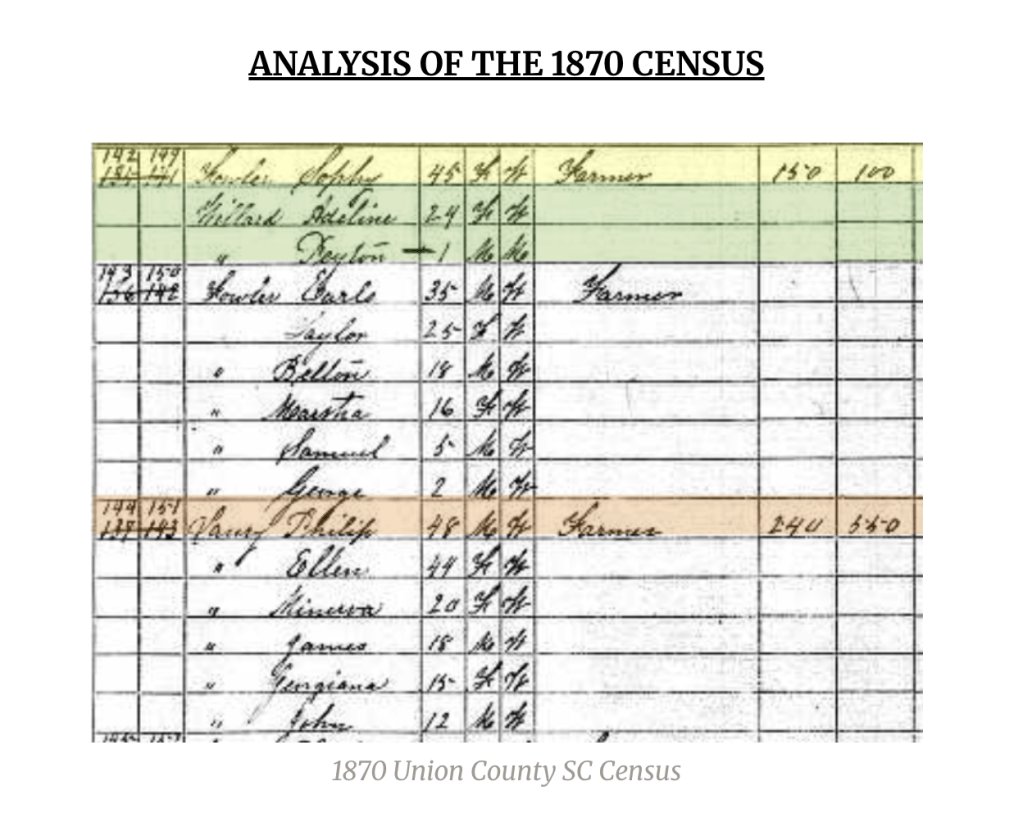 ANALYSIS OF THE 1870 CENSUS
142 149
Fowler Sophy 45 F W Farmer 150 100
Willard Adeline 24 F W
" Peyton 1 M M
143 150
Fowler Earls 35 M W Farmer
Taylor 25 F W
" Belton 18 M W
" Martha 16 F W
" Samuel 5 M W
" George 2 M W
144 151
137 143 Philip 48 M W Farmer 240 550
" Ellen 44 F W
" Minerva 20 F W
" James 18 M W
" Georgiana 15 F W
" John 12 M W
1870 Union County SC Census